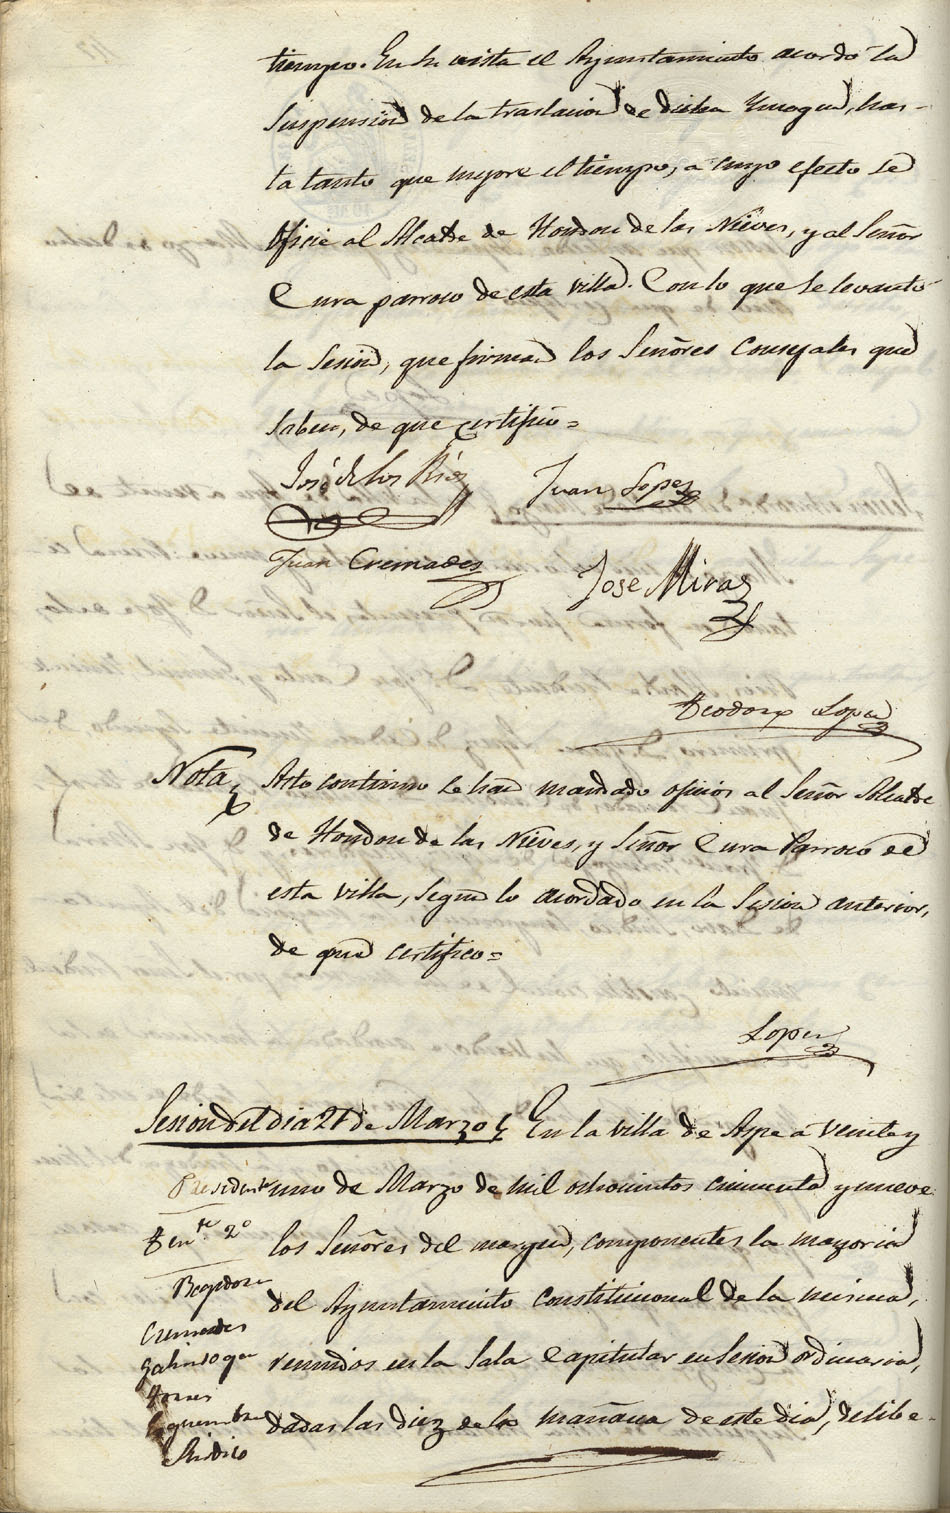 tiempo. En su vista el Ayuntamiento acordó la
suspension de la traslacion de dicha Ymagen, has-
ta tanto que mejore el tiempo, a cuyo efecto se
oficie al Alcalde de Hondon de las Nieves, y al Señor
Cura parroco de esta villa. Con lo que se levantó
la Sesion, que firman los Señores Concejales que
saben, de que certifico =
José de los Rios
Juan Lopez
Juan Cremades
Jose Miras
Teodoro Lopez
Nota
Acto continuo se han mandado oficios al Señor Alcalde
de Hondon de las Nieves, y Señor Cura Parroco de
esta villa, segun lo acordado en la Sesion anterior,
de que certifico =
Lopez
Sesion del dia 21 de Marzo
En la villa de Aspe a veinte y
uno de Marzo de mil ochocientos cincuenta y nueve
los Señores del margen, componentes la mayoria
del Ayuntamiento constitucional de la misma,
reunidos en la Sala Capitular en Sesion ordinaria,
dadas las diez de la mañana de este dia, delibe-
Presidente
Tente. 2º
Regidores
Cremades
Galinsoga
Torres
Sindico